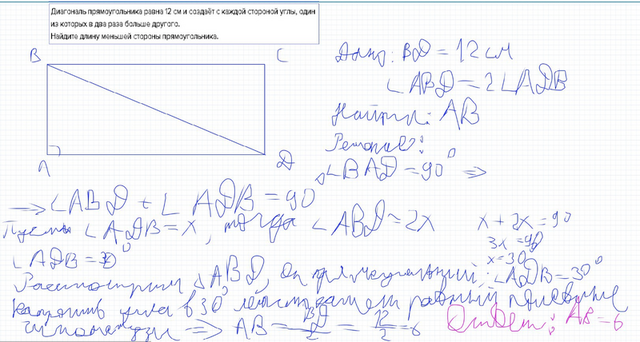 Диагональ прямоугольника равна 12 см и создаёт с каждой стороной углы, один
из которых в два раза больше другого.
Найдите длину меньшей стороны прямоугольника.
B
C
A
D
Дано: BD = 12 см
∠ABD = 2∠ADB
Найти: AB
Решение:
∠BAD = 90° ⇒
⇒ ∠ABD + ∠ADB = 90
Пусть ∠ADB = x, тогда ∠ABD = 2x
x + 2x = 90
3x = 90
x = 30
∠ADB = 30°
Рассмотрим △ABD, он прямоугольный, ∠ADB = 30°
угла в 30° равный половине
гипотенузы ⇒ AB = BD/2 = 12/2 = 6
Ответ: AB = 6